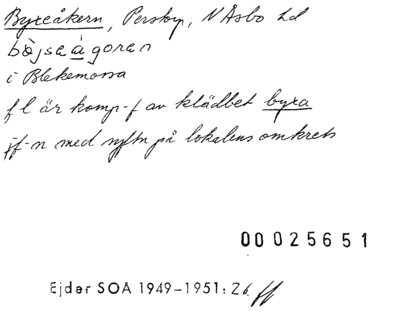 Byxeåkern, Perstorp, N Åsbo hd
i Blekemossa
fl är komp-f av klädbet byxa
jf-n med syftn på lokalens omkrets
00025651
Ejder SOA 1949-1951: 26